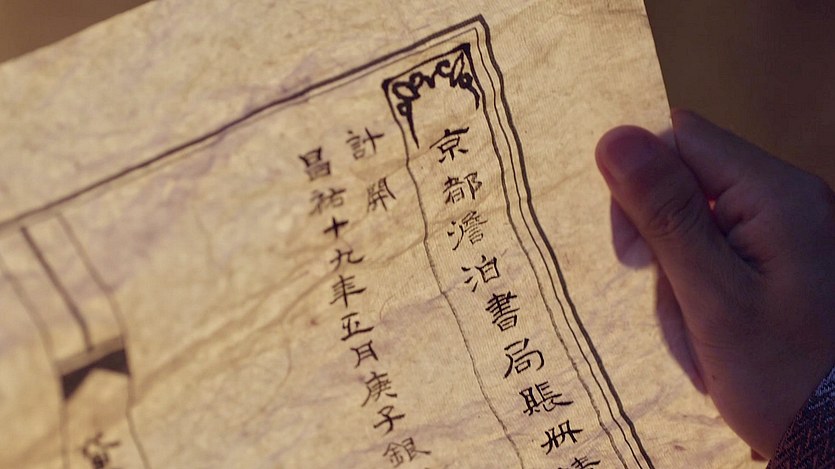 京都澹泊書局賬冊清
計開
昌祐十九年五月庚子銀